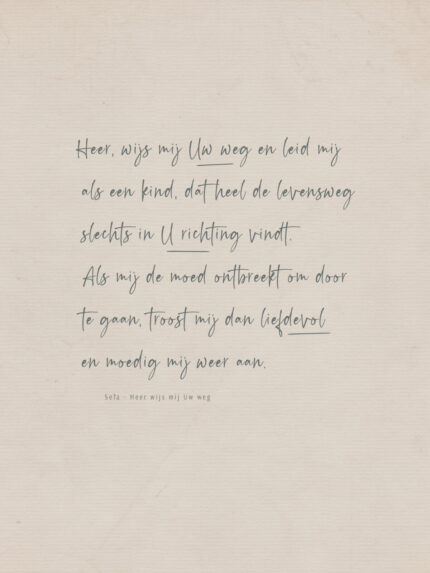 Heer, wijs mij Uw weg en leid mij
als een kind, dat heel de levensweg
slechts in U richting vindt.
Als mij de moed ontbreekt om door
te gaan, troost mij dan liefdevol
en moedig mij weer aan.
Sela - Heer wijs mij Uw weg